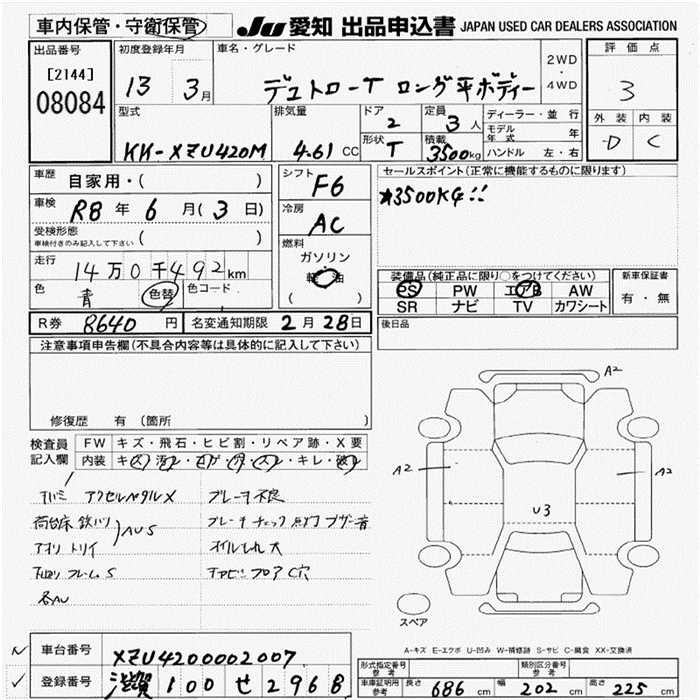 車内保管・守衛保管
JU 愛知 出品申込書 JAPAN USED CAR DEALERS ASSOCIATION
出品番号
[2144]
08084
初度登録年月
13 3月
車名・グレード
デュトローT ロング平ボディー
2WD
・
4WD
評価点
3
外装 内装
D C
型式
KK-XZU420M
排気量
4.61 CC
ドア
2
形状
T
定員
3人
積載
3500kg
ディーラー・並行
モデル年式 年
ハンドル 左・右
車歴 自家用・( )
車検 R8年 6月(3日)
受検形態
車検付きのみ記入して下さい ( )
走行 14万0千492km
色 青 色替 色コード
シフト
F6
冷房
AC
燃料
ガソリン
軽油
( )
セールスポイント(正常に機能するものに限ります)
*3500KG!!
装備品(純正品に限り○をつけてください)
PS PW エアB AW
SR ナビ TV カワシート
新車保証書
有・無
後日品
R券 8640円 名変通知期限 2月28日
注意事項申告欄(不具合内容等は具体的に記入して下さい)
修復歴 有 (箇所 )
検査員記入欄
FW キズ・飛石・ヒビ割・リペア跡・X要
内装 キズ・汚れ・コゲ・穴・スレ・キレ・破れ
アクセルペダルX ブレーキ不良
荷台床 鉄ハリ AUS ブレーキチェック点灯ブザー音
アオリ トリイ オイルもれ大
下廻り フレームS キャビンフロアC穴
各AU
A2
A2
A2
U3
スペア
A-キズ E-エクボ U-凹み W-補修跡 S-サビ C-腐食 XX-交換済
車台番号 XZU4200002007
登録番号 滋賀 100 せ 2968
型式指定番号
参考
類別区分番号
参考
車庫証明用
参考
長さ 686 cm 幅 202 cm 高さ 225 cm